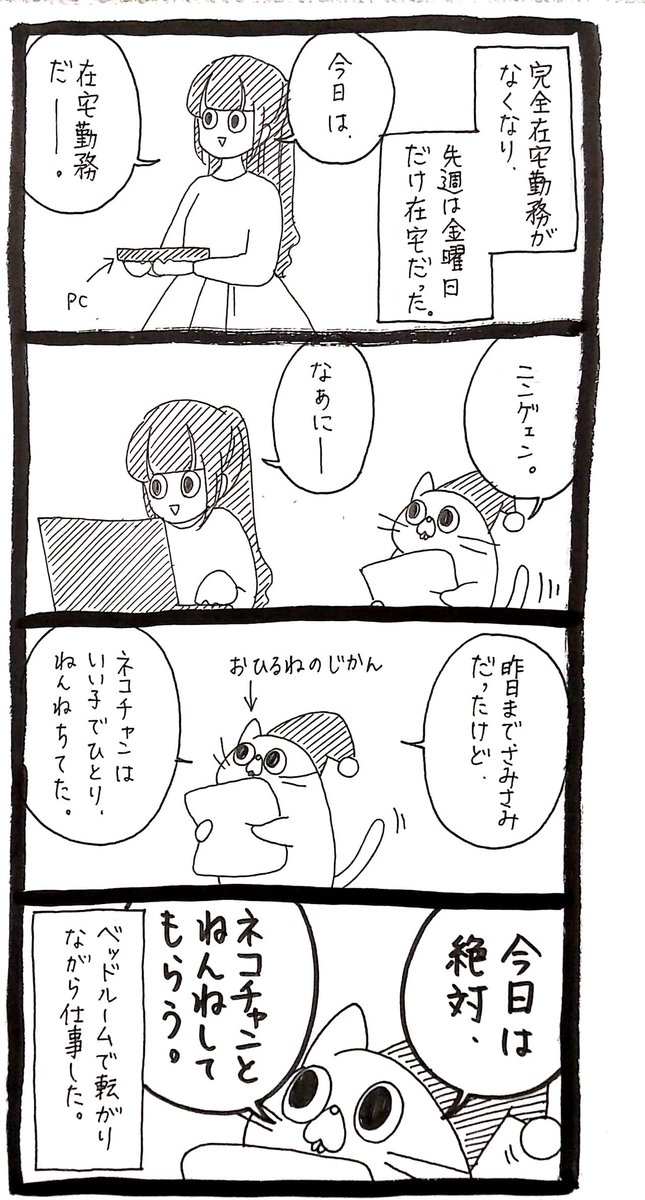 完全在宅勤務が
なくなり、
先週は金曜日
だけ在宅だった。
今日は、
在宅勤務
だーー。
PC
ニンゲェン。
なぁにー
昨日までさみさみ
だったけど、
おひるねのじかん
ネコチャンは
いい子でひとり、
ねんねちてた。
今日は
絶対、
ネコチャンと
ねんねして
もらう。
ベッドルームで転がり
ながら仕事した。